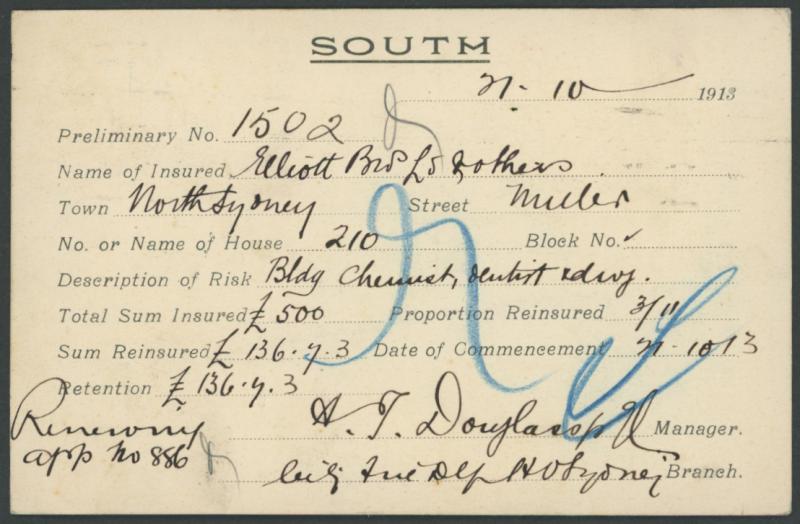 SOUTH
21. 10 1913
Preliminary No. 1502
Name of Insured Elliott Bros Ld & others
Town North Sydney Street Miller
No. or Name of House 210 Block No.
Description of Risk Bldg Chemist, dentist & dwg.
Total Sum Insured £500 Proportion Reinsured 3/11
Sum Reinsured £136.7.3 Date of Commencement 21-10 13
Retention £136.7.3
Renewing
app no 886
A. T. Douglas Manager.
H O Sydney Branch.